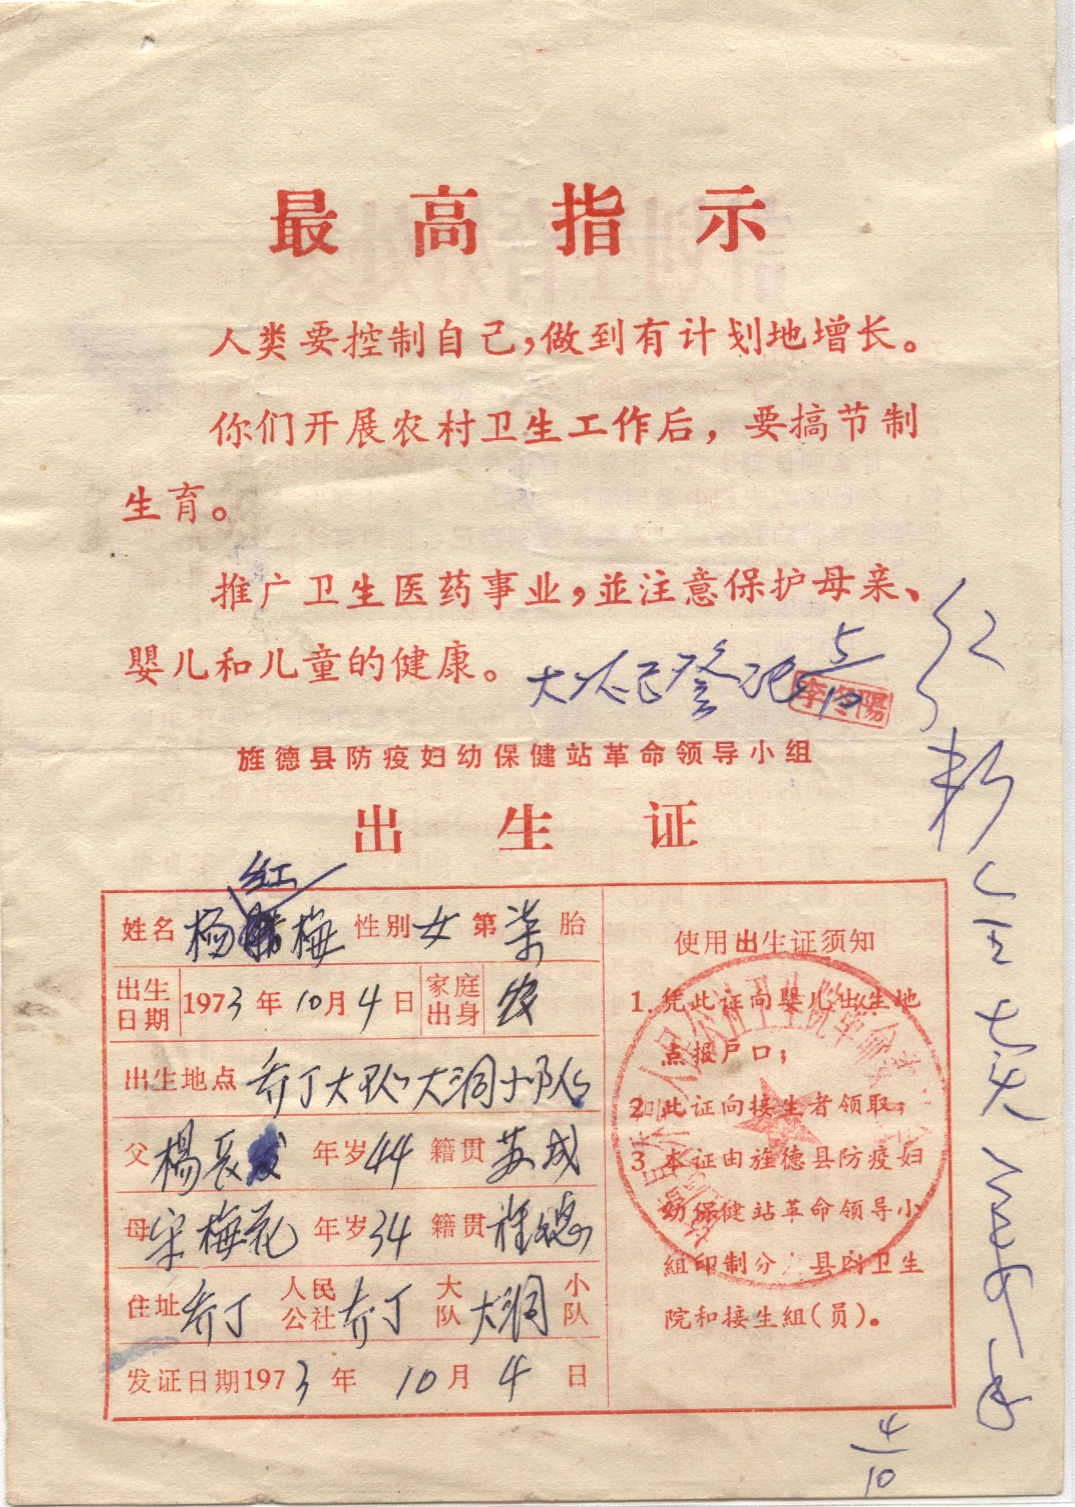 最高指示
人类要控制自己，做到有计划地增长。
你们开展农村卫生工作后，要搞节制
生育。
推广卫生医药事业，並注意保护母亲、
婴儿和儿童的健康。
登记 5/10
李冬陽
旌德县防疫妇幼保健站革命领导小组
出生证
红
姓名 杨梅 性别 女 第 柒 胎
出生日期 1973年10月4日 家庭出身 农
出生地点 乔丁大队大洞小队
父 楊长发 年岁 44 籍贯
母 宋梅花 年岁 34 籍贯 旌德
住址 乔丁 人民公社 乔丁 大队 大洞 小队
发证日期 1973年10月4日
使用出生证须知
1. 凭此证向婴儿出生地
点报户口；
2 此证向接生者领取；
3 本证由旌德县防疫妇
幼保健站革命领导小
組印制分 县内卫生
院和接生組(员)。
4/10